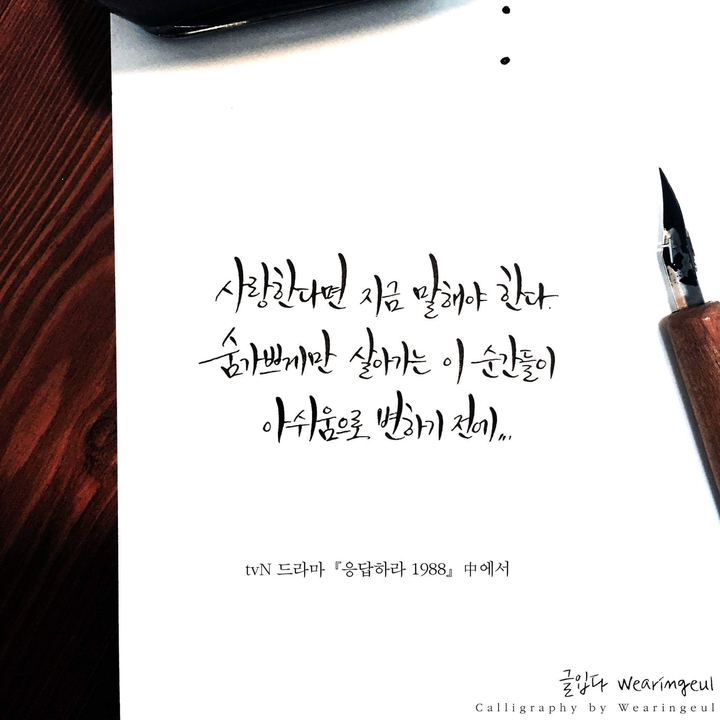 사랑한다면 지금 말해야 한다.
숨가쁘게만 살아가는 이 순간들이
아쉬움으로 변하기 전에...
tvN 드라마『응답하라 1988』中에서
글입다 wearingeul
Calligraphy by Wearingeul